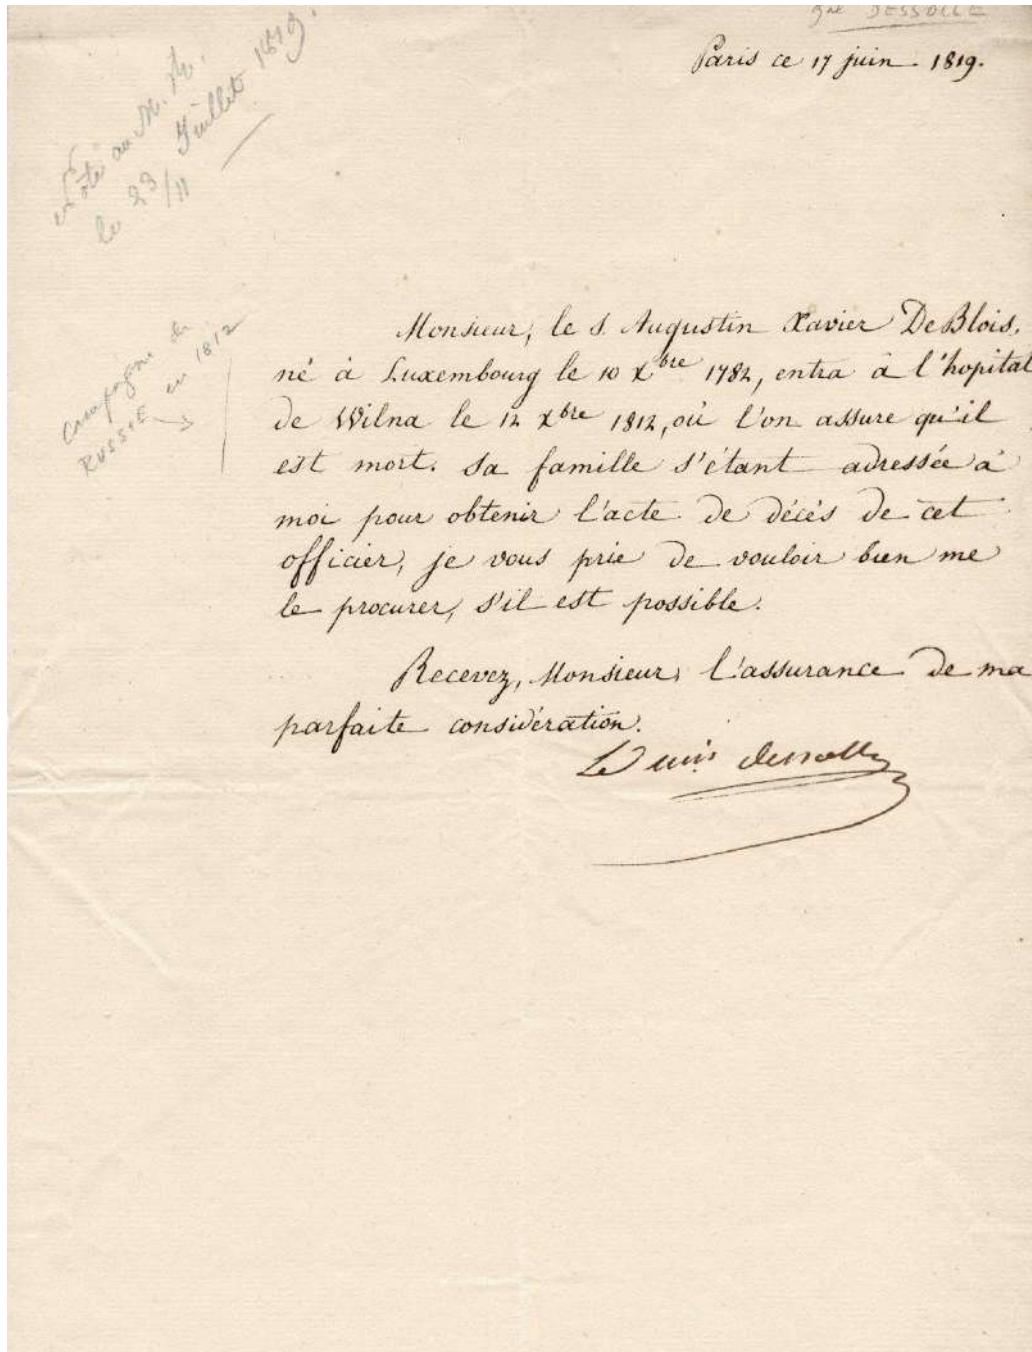 gal DESSOLLE
Paris ce 17 juin 1819.
le 23 Juillet 1819.
/11
Campagne de
RUSSIE en 1812
Monsieur, le S. Augustin Xavier DeBlois,
né à Luxembourg le 10 Xbre 1782, entra à l'hopital
de Wilna le 12 Xbre 1812, où l'on assure qu'il
est mort. Sa famille s'étant adressée à
moi pour obtenir l'acte de décès de cet
officier, je vous prie de vouloir bien me
le procurer, s'il est possible.
Recevez, Monsieur, l'assurance de ma
parfaite considération.
Le Mis Dessolle